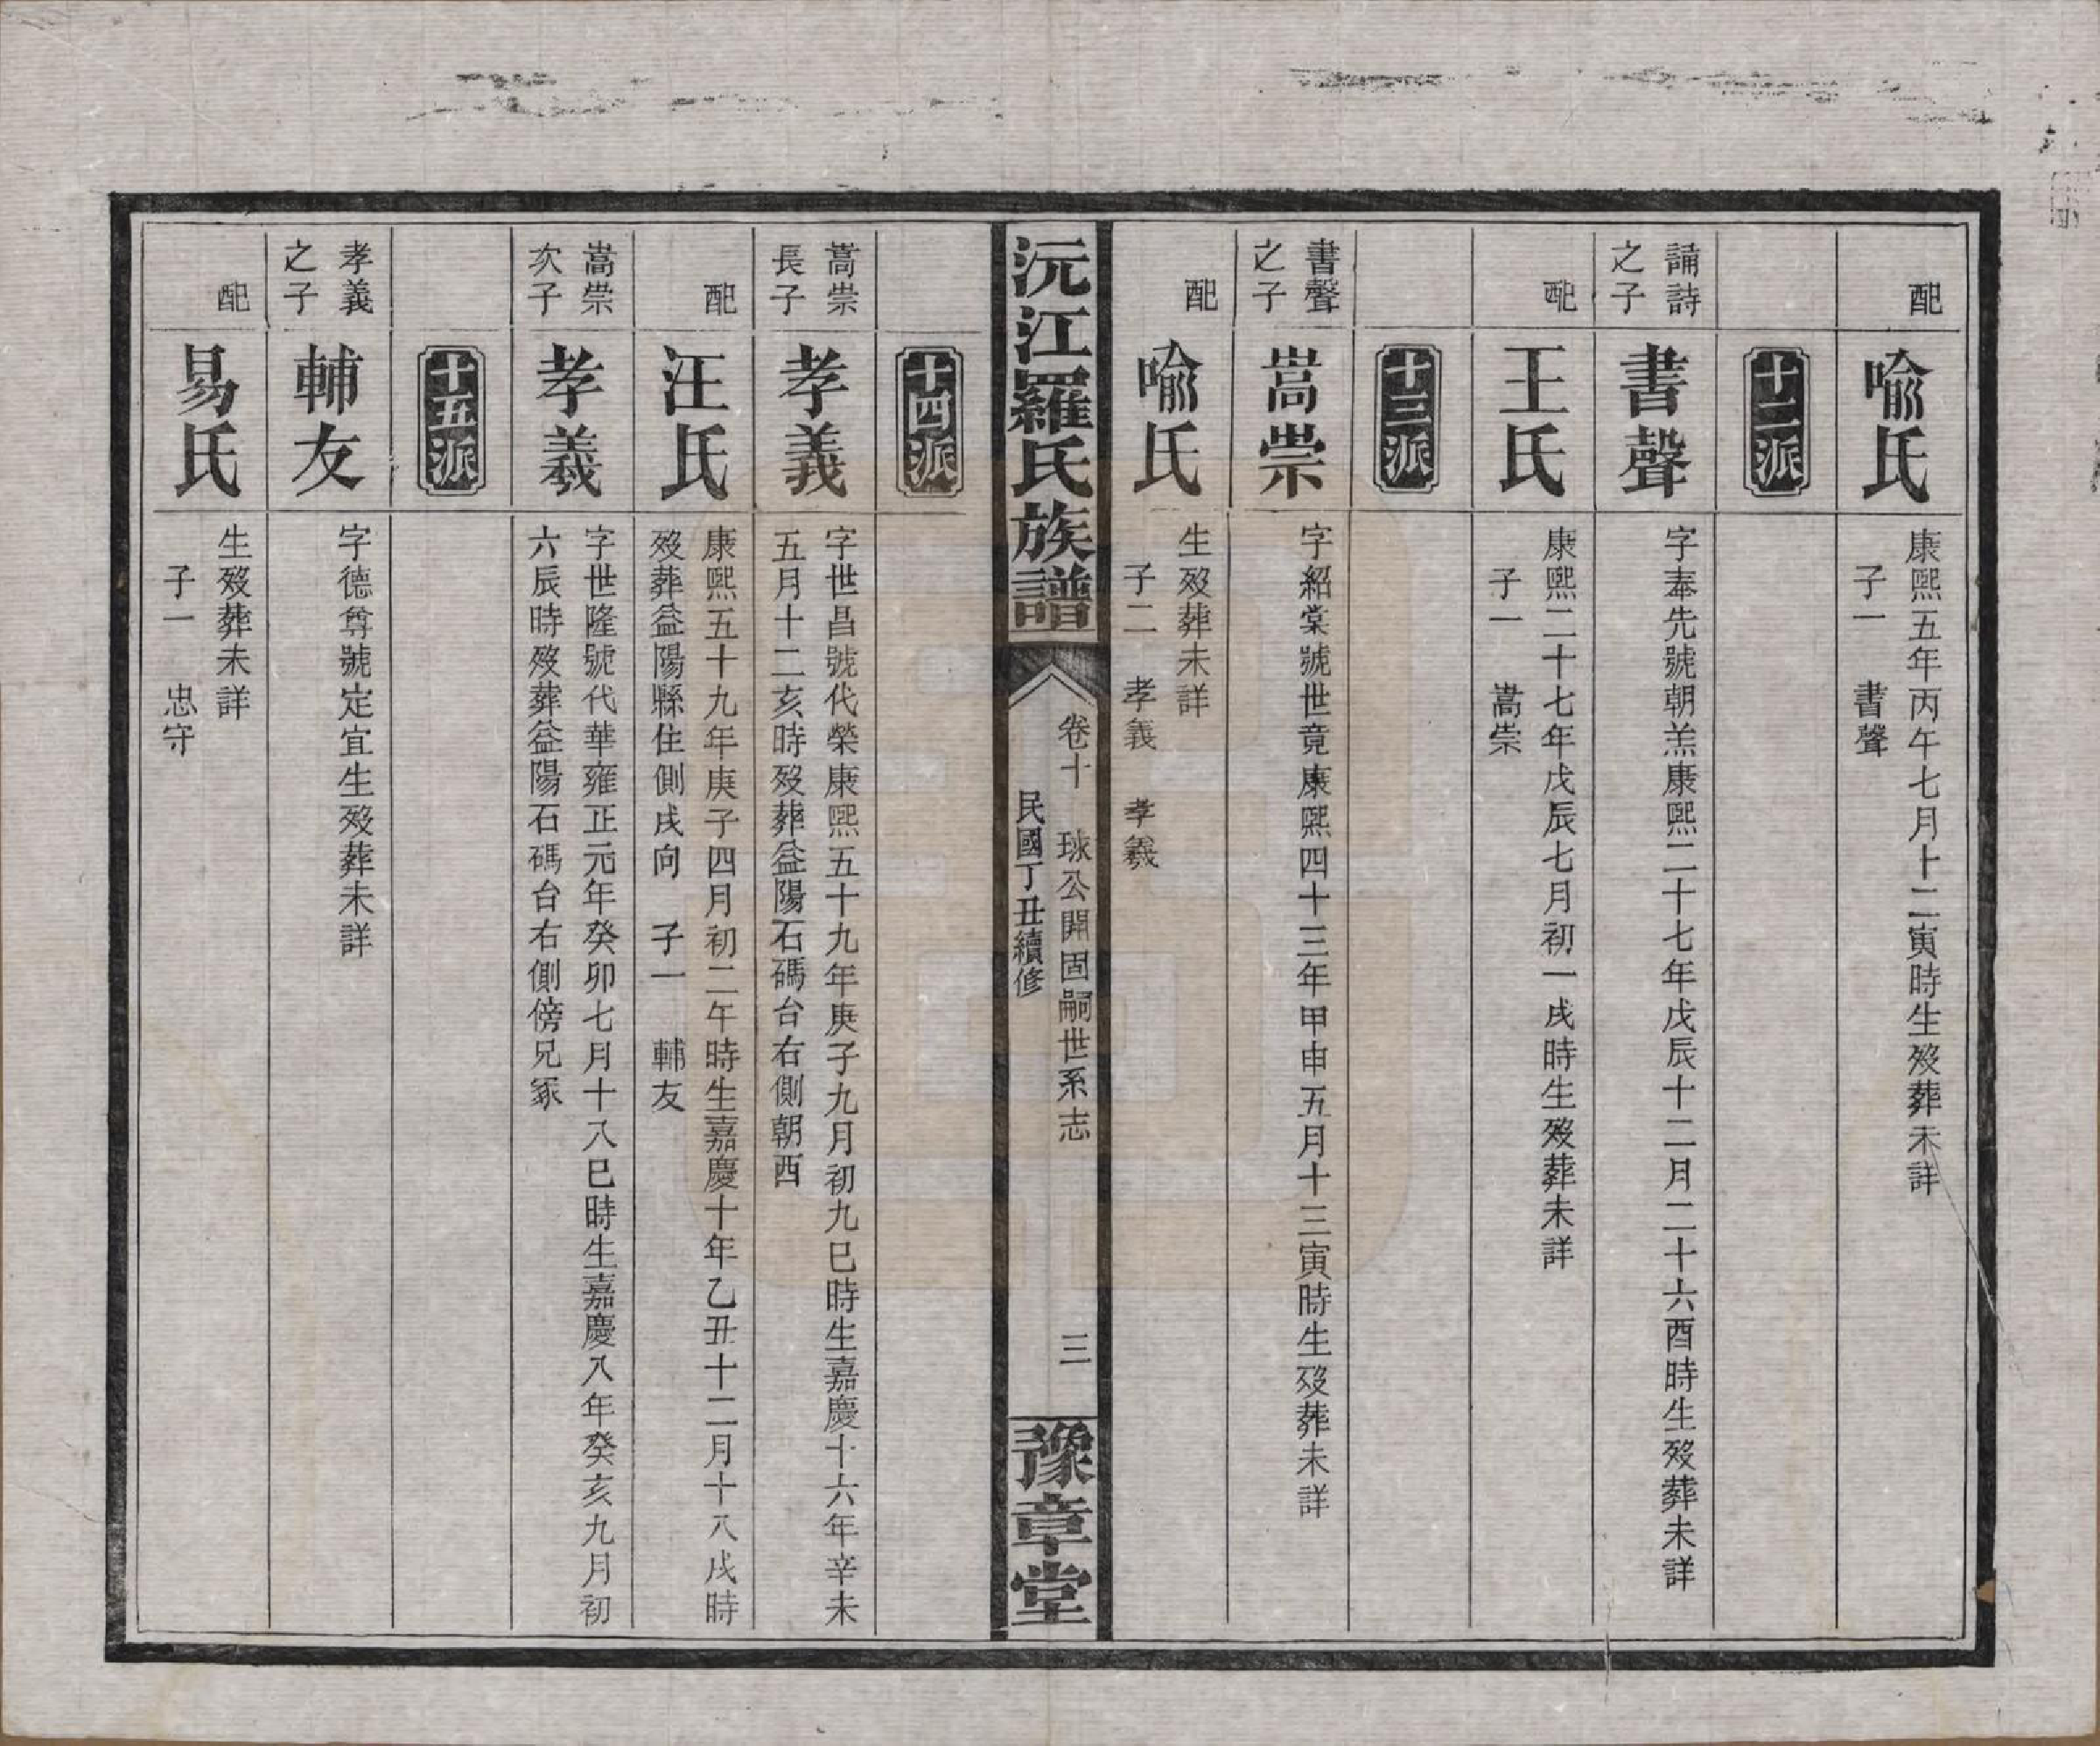 配
喻氏
康熙五年丙午七月十二寅時生歿葬未詳
子一　書聲
十二派
誦詩
之子
書聲
字奉先號朝羔康熙二十七年戊辰十二月二十六酉時生歿葬未詳
配
王氏
康熙二十七年戊辰七月初一戌時生歿葬未詳
子一　嵩崇
十三派
書聲
之子
嵩崇
字紹棠號世竟康熙四十三年甲申五月十三寅時生歿葬未詳
配
喻氏
生歿葬未詳
子二　孝義　孝羲
沅江羅氏族譜
卷十　球公開固嗣世系志　三
民國丁丑續修
豫章堂
十四派
嵩崇
長子
孝義
字世昌號代榮康熙五十九年庚子九月初九巳時生嘉慶十六年辛未
五月十二亥時歿葬益陽石碼台右側朝西
配
汪氏
康熙五十九年庚子四月初二午時生嘉慶十年乙丑十二月十八戌時
歿葬益陽縣住側戌向　子一　輔友
嵩崇
次子
孝羲
字世隆號代華雍正元年癸卯七月十八巳時生嘉慶八年癸亥九月初
六辰時歿葬益陽石碼台右側傍兄冢
十五派
孝義
之子
輔友
字德尊號定宜生歿葬未詳
配
易氏
生歿葬未詳
子一　忠守